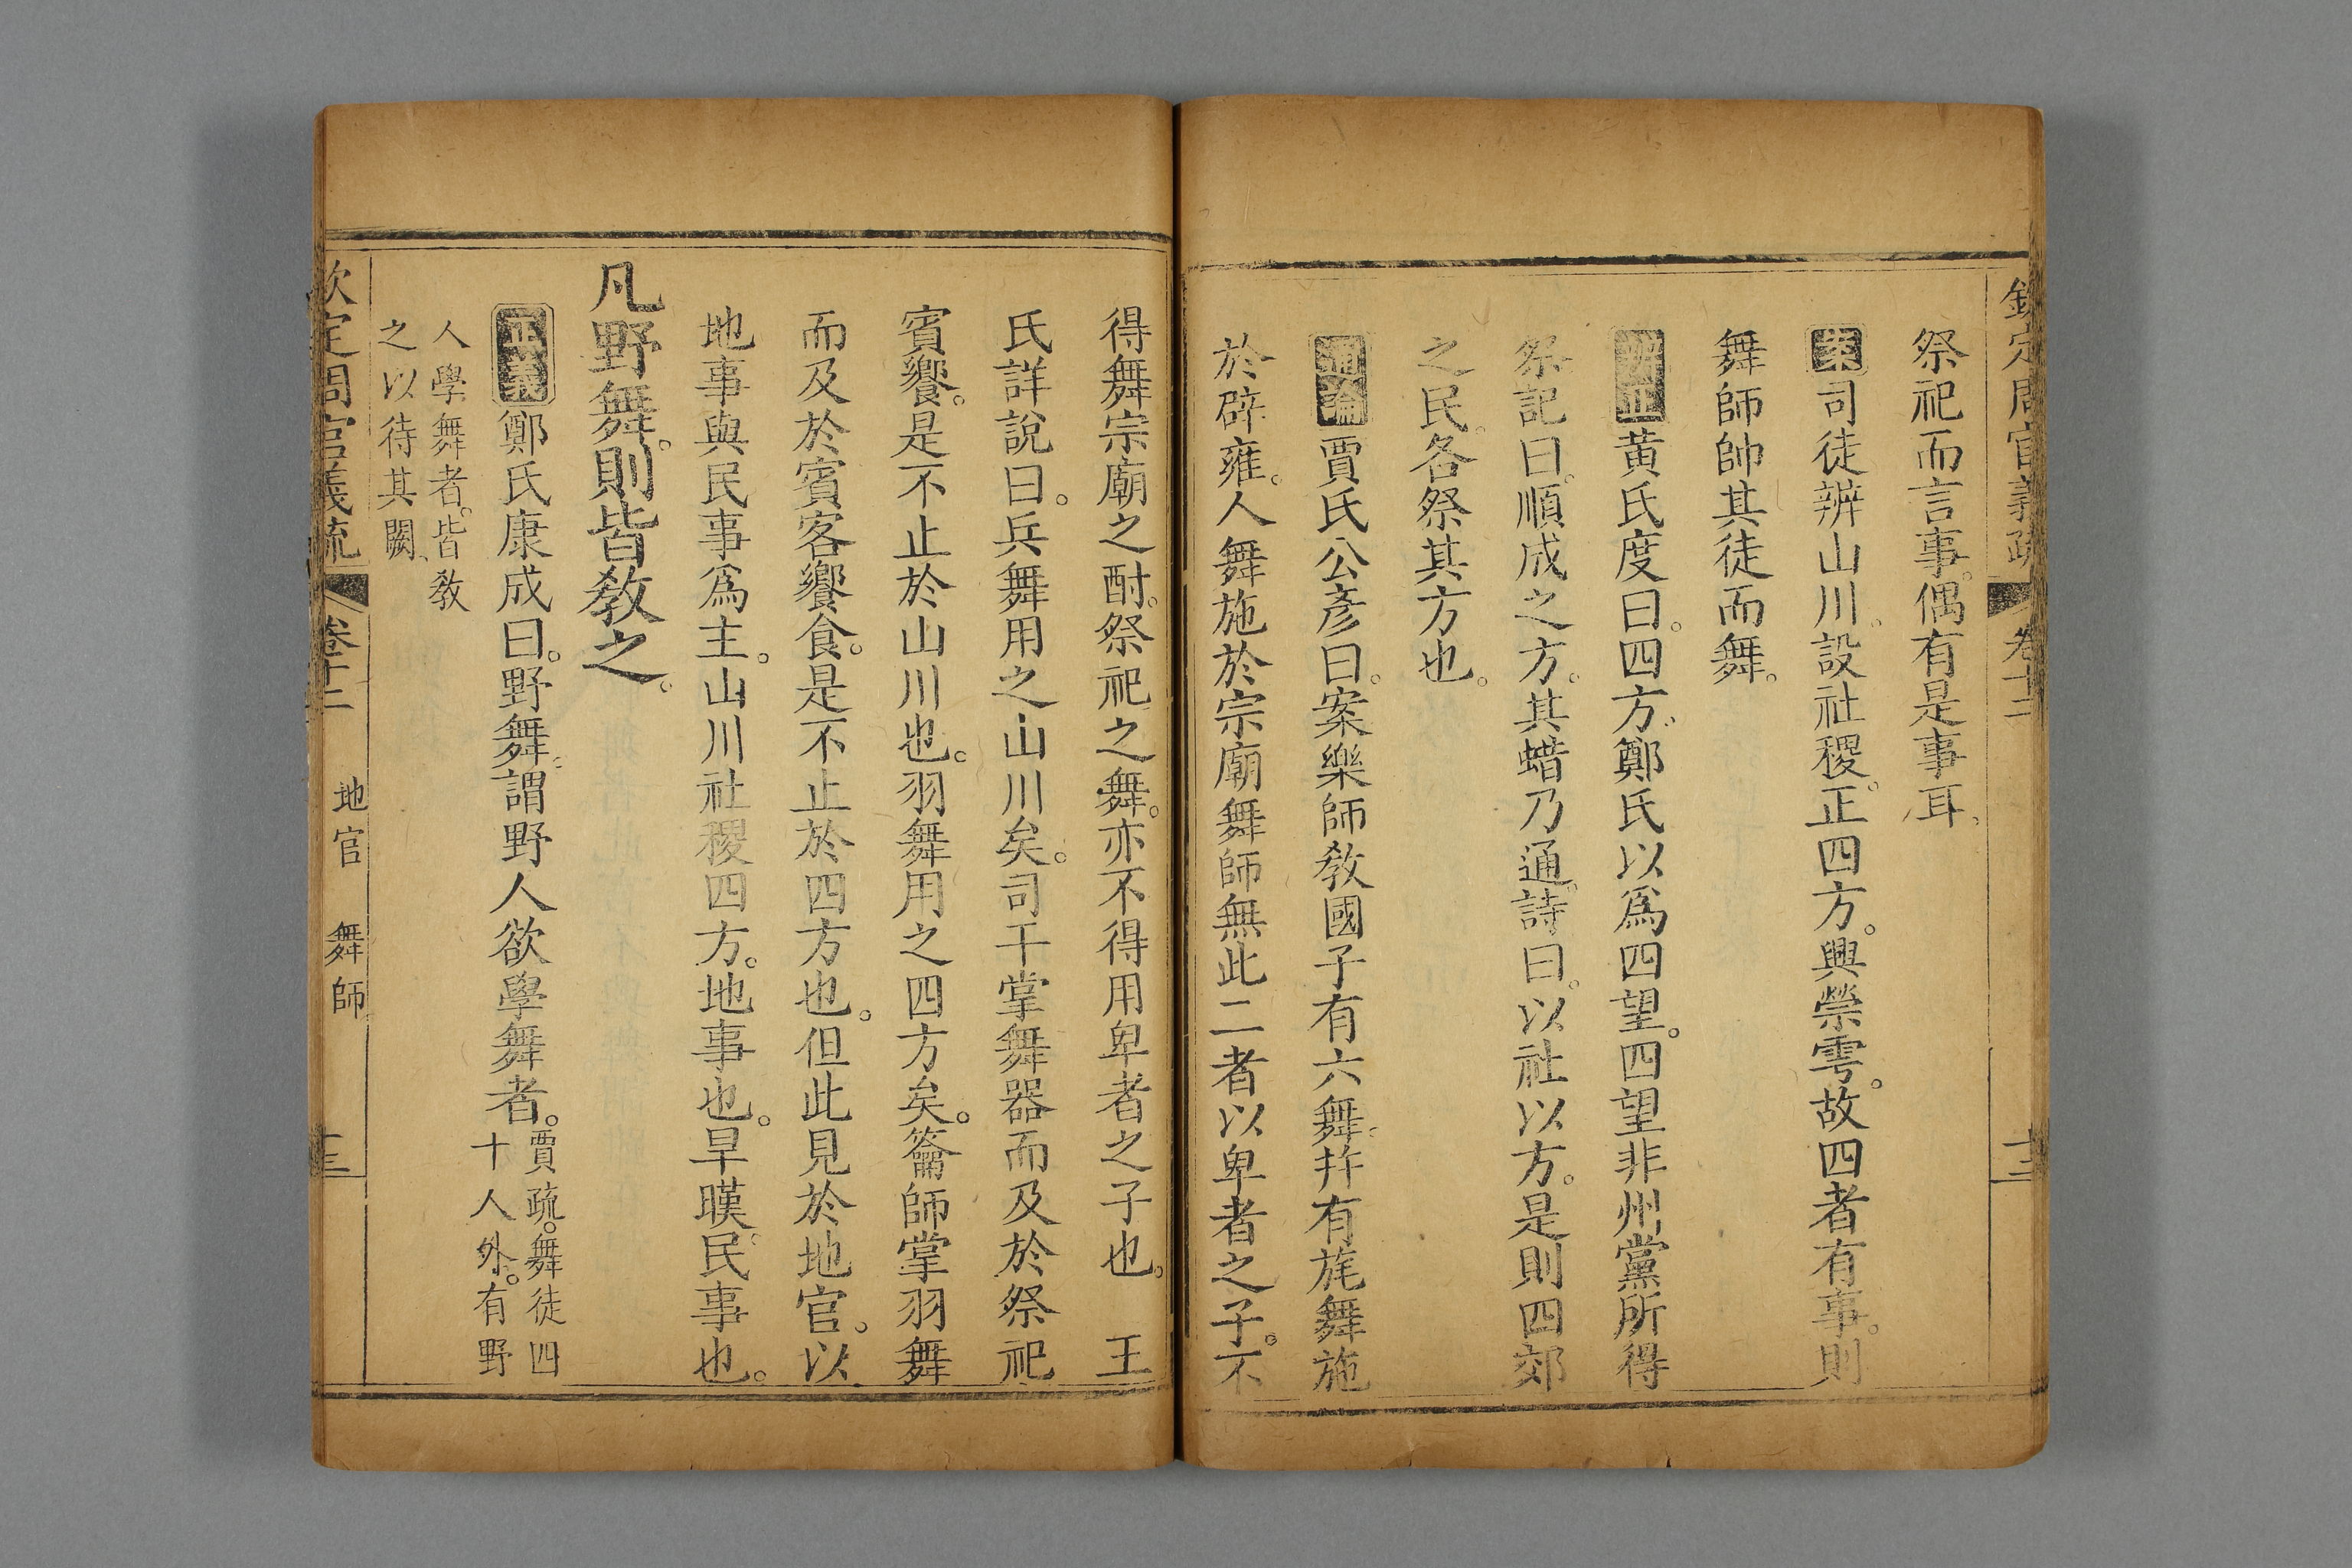 欽定周官義疏 卷十二 十三
祭祀而言事。偶有是事耳、
案司徒辨山川。設社稷。正四方。興禜雩。故四者有事。則
舞師帥其徒而舞。
辨正黄氏度曰。四方。鄭氏以爲四望。四望非州黨所得
祭記曰。順成之方。其蜡乃通。詩曰。以社以方。是則四郊
之民。各祭其方也。
通論賈氏公彥曰。案樂師敎國子有六舞。并有旄舞施
於辟雍。人舞施於宗廟舞師無此二者以卑者之子。不
得舞宗廟之酎。祭祀之舞。亦不得用卑者之子也。　王
氏詳說曰。兵舞用之山川矣。司干掌舞器而及於祭祀
賓饗。是不止於山川也。羽舞用之四方矣。籥師掌羽舞
而及於賓客饗食。是不止於四方也。但此見於地官。以
地事與民事爲主。山川社稷四方。地事也。旱暵民事也。
凡野舞。則皆敎之。
正義鄭氏康成曰。野舞。謂野人欲學舞者。
賈疏。舞徒四
十人外。有野
人學舞者。皆敎
之以待其闕、
欽定周官義疏 卷十二 地官 舞師 十三